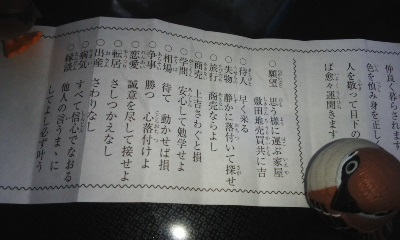 仲良く暮らされます
色を慎み身を正しく
人を敬って目下の
ば愈々運開きます
○願望 思う様に運ぶ家屋
畑田地売買共に吉
○待人 早く来る
○失物 静かに落付いて探せ
○旅行 商売ならよし
○商売 上吉さわぐと損
○学問 安心して勉学せよ
○相場 待て 動かせば損
○争事 勝つ 心落付けよ
○恋愛 誠意を尽して接せよ
○転居 さしつかえなし
○出産 さわりなし
○病気 すべて信心でなおる
○縁談 他人の言うまゝに
してよし必ず叶う